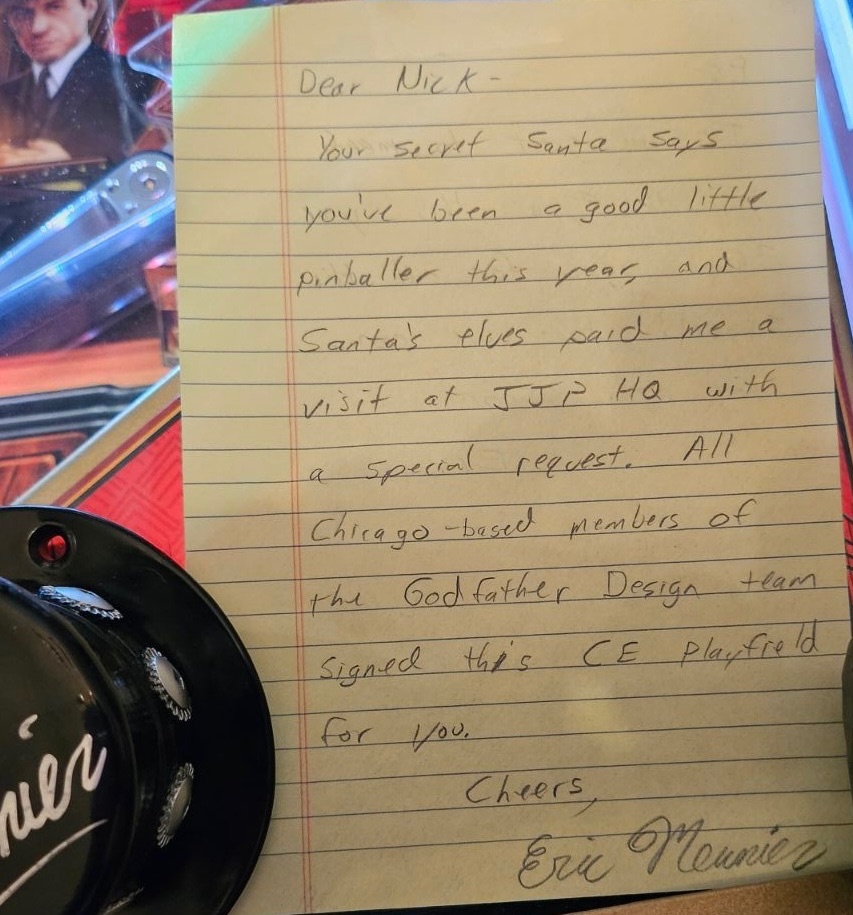 Dear Nick-
Your secret Santa says
you've been a good little
pinballer this year, and
Santa's elves paid me a
visit at JJP HQ with
a special request. All
Chicago-based members of
the Godfather Design team
signed this CE playfield
for you.
Cheers,
Eric Meunier
nier